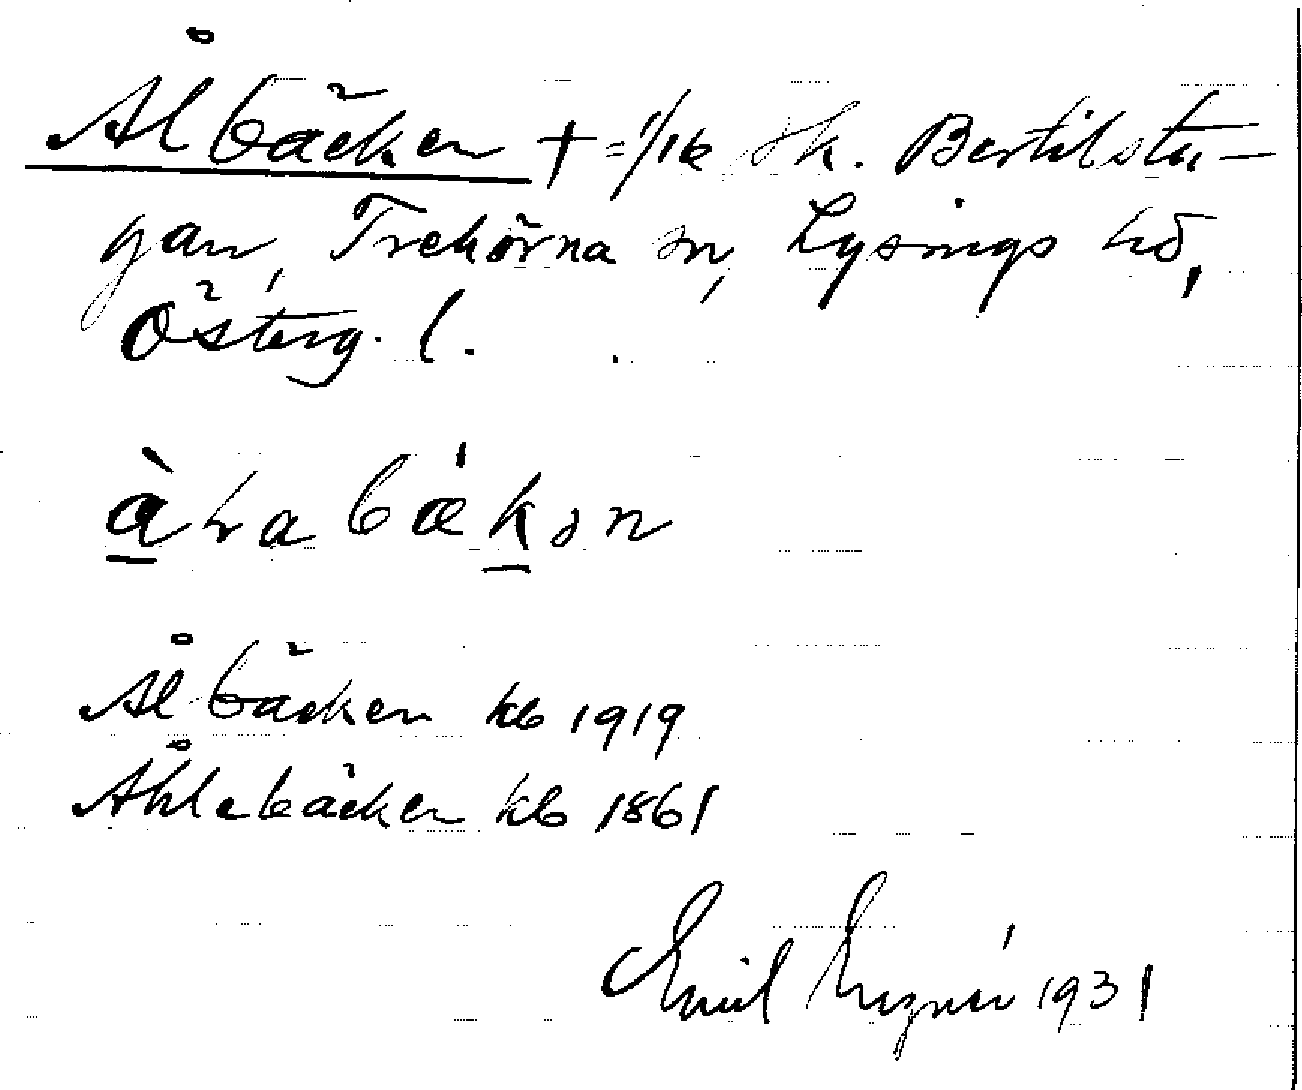 Ålbäcken † = 1/16 sk. Bertilstu-
gan, Trehörna sn, Lysings hd,
Österg. l.
Ålbäcken kb 1919
Åhlebäcken kb 1861
Emil 1931